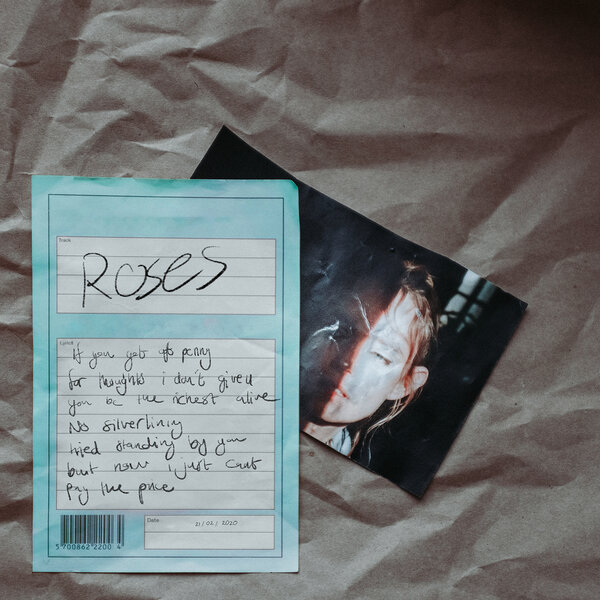 Track
Roses
Lyrics
If you get penny
for thoughts i don't give u
you be the richest alive
No silverlining
tried standing by you
but now i just cant
pay the price
5 700862 2200 4
Date
21/02/2020